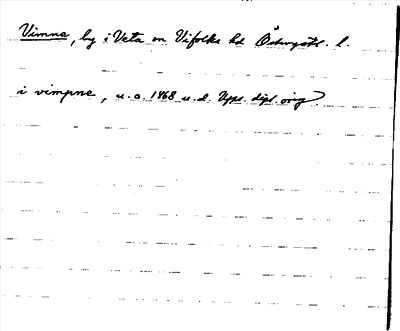 Vimna, by i Veta sn Vifolka hd Östergötl. l.
i vimpne, u.o. 1468 u.d. Upps. dipl. orig.